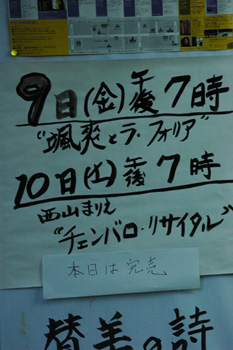 9日(金)午後7時
"颯爽とラ・フォリア"
10日(土)午後7時
西山まりえ
"チェンバロ・リサイタル"
本日は完売
替美の詩